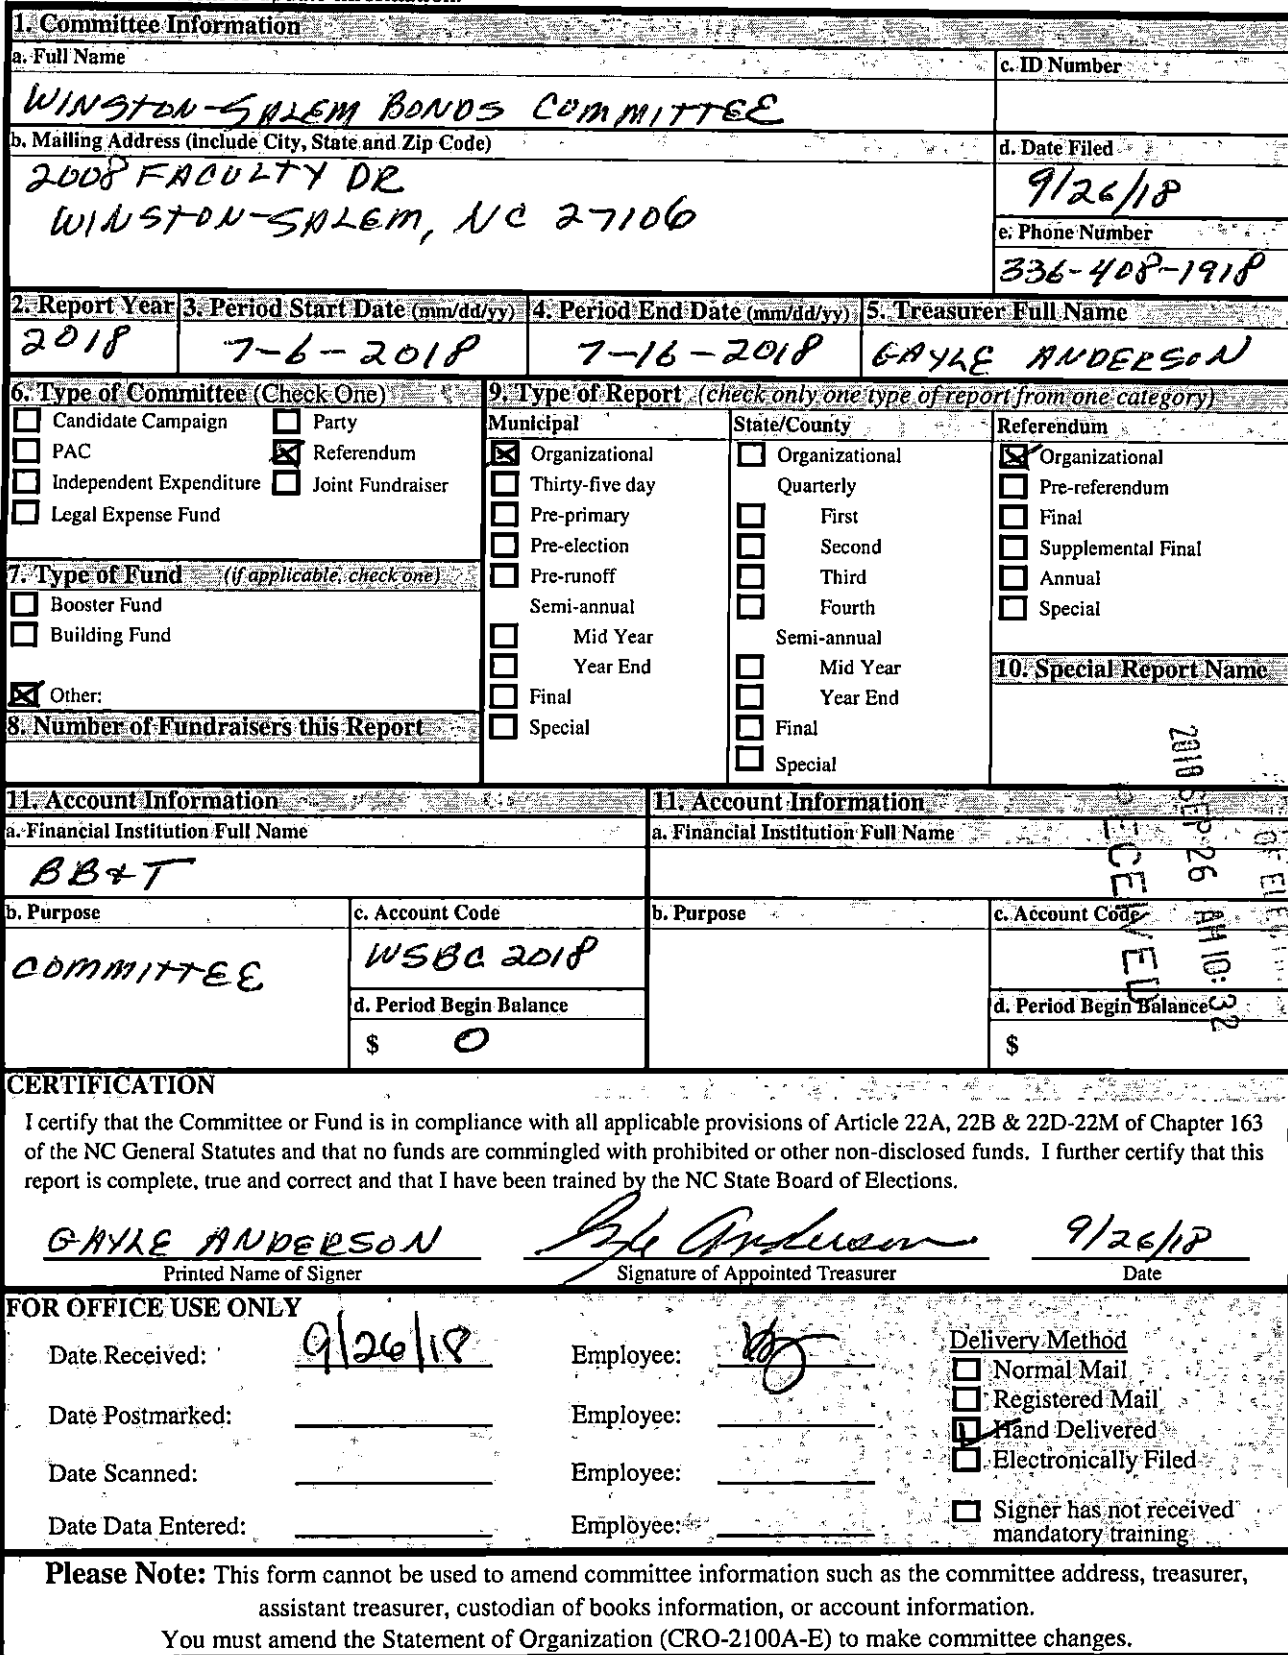 1. Committee Information
a. Full Name
c. ID Number
WINSTON-SALEM BONDS COMMITTEE
b. Mailing Address (include City, State and Zip Code)
d. Date Filed
2008 FACULTY DR
9/26/18
WINSTON-SALEM, NC 27106
e. Phone Number
336-408-1918
2. Report Year 3. Period Start Date (mm/dd/yy) 4. Period End Date (mm/dd/yy) 5. Treasurer Full Name
2018 7-6-2018 7-16-2018 GAYLE ANDERSON
6. Type of Committee (Check One)
Candidate Campaign Party
PAC Referendum
Independent Expenditure Joint Fundraiser
Legal Expense Fund
7. Type of Fund (if applicable, check one)
Booster Fund
Building Fund
Other:
8. Number of Fundraisers this Report
9. Type of Report (check only one type of report from one category)
Municipal
Organizational
Thirty-five day
Pre-primary
Pre-election
Pre-runoff
Semi-annual
Mid Year
Year End
Final
Special
State/County
Organizational
Quarterly
First
Second
Third
Fourth
Semi-annual
Mid Year
Year End
Final
Special
Referendum
Organizational
Pre-referendum
Final
Supplemental Final
Annual
Special
10. Special Report Name
2018 SEP 26 AM 10:32
RECEIVED
11. Account Information
a. Financial Institution Full Name
BB&T
b. Purpose
COMMITTEE
c. Account Code
WSBC 2018
d. Period Begin Balance
$ 0
11. Account Information
a. Financial Institution Full Name
b. Purpose
c. Account Code
d. Period Begin Balance
$
CERTIFICATION
I certify that the Committee or Fund is in compliance with all applicable provisions of Article 22A, 22B & 22D-22M of Chapter 163
of the NC General Statutes and that no funds are commingled with prohibited or other non-disclosed funds. I further certify that this
report is complete, true and correct and that I have been trained by the NC State Board of Elections.
GAYLE ANDERSON Gayle Anderson 9/26/18
Printed Name of Signer Signature of Appointed Treasurer Date
FOR OFFICE USE ONLY
Date Received: 9/26/18 Employee:
Date Postmarked: Employee:
Date Scanned: Employee:
Date Data Entered: Employee:
Delivery Method
Normal Mail
Registered Mail
Hand Delivered
Electronically Filed
Signer has not received
mandatory training
Please Note: This form cannot be used to amend committee information such as the committee address, treasurer,
assistant treasurer, custodian of books information, or account information.
You must amend the Statement of Organization (CRO-2100A-E) to make committee changes.